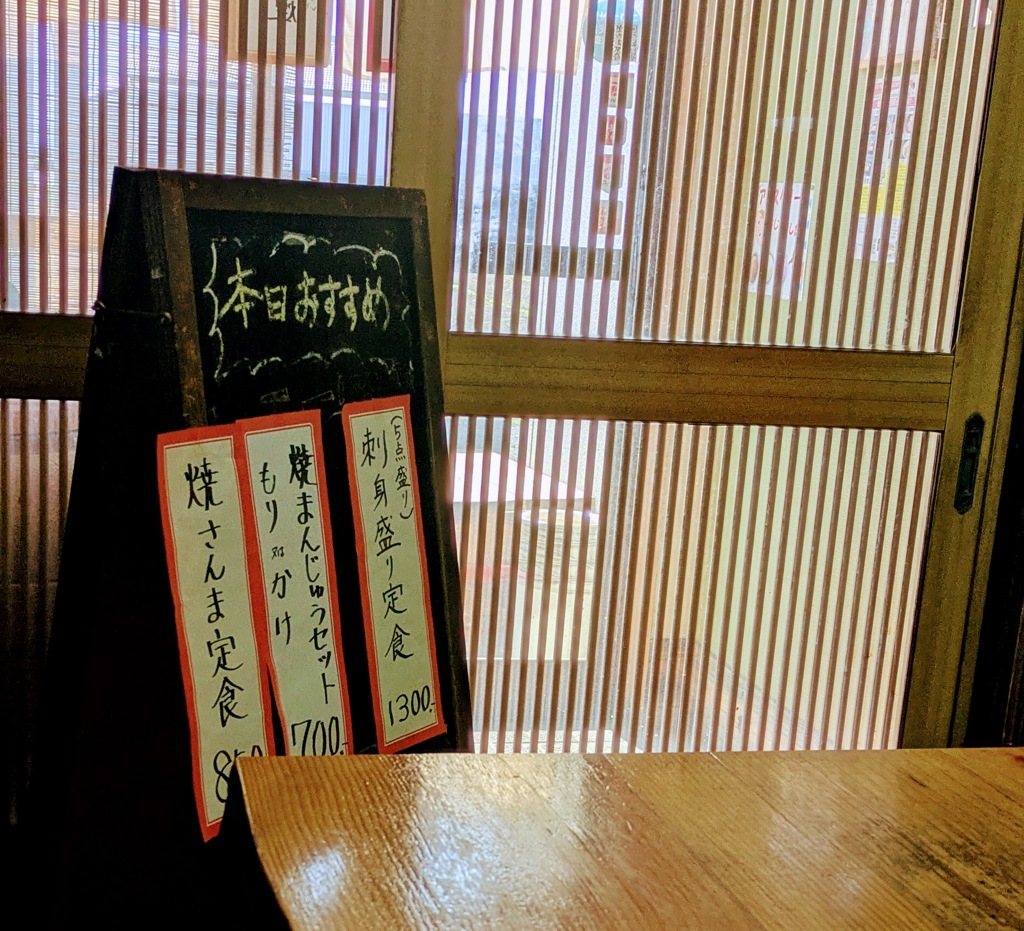 本日おすすめ
(5点盛り)
刺身盛り定食
1300.-
焼まんじゅうセット
もり
かけ
700.-
焼さんま定食